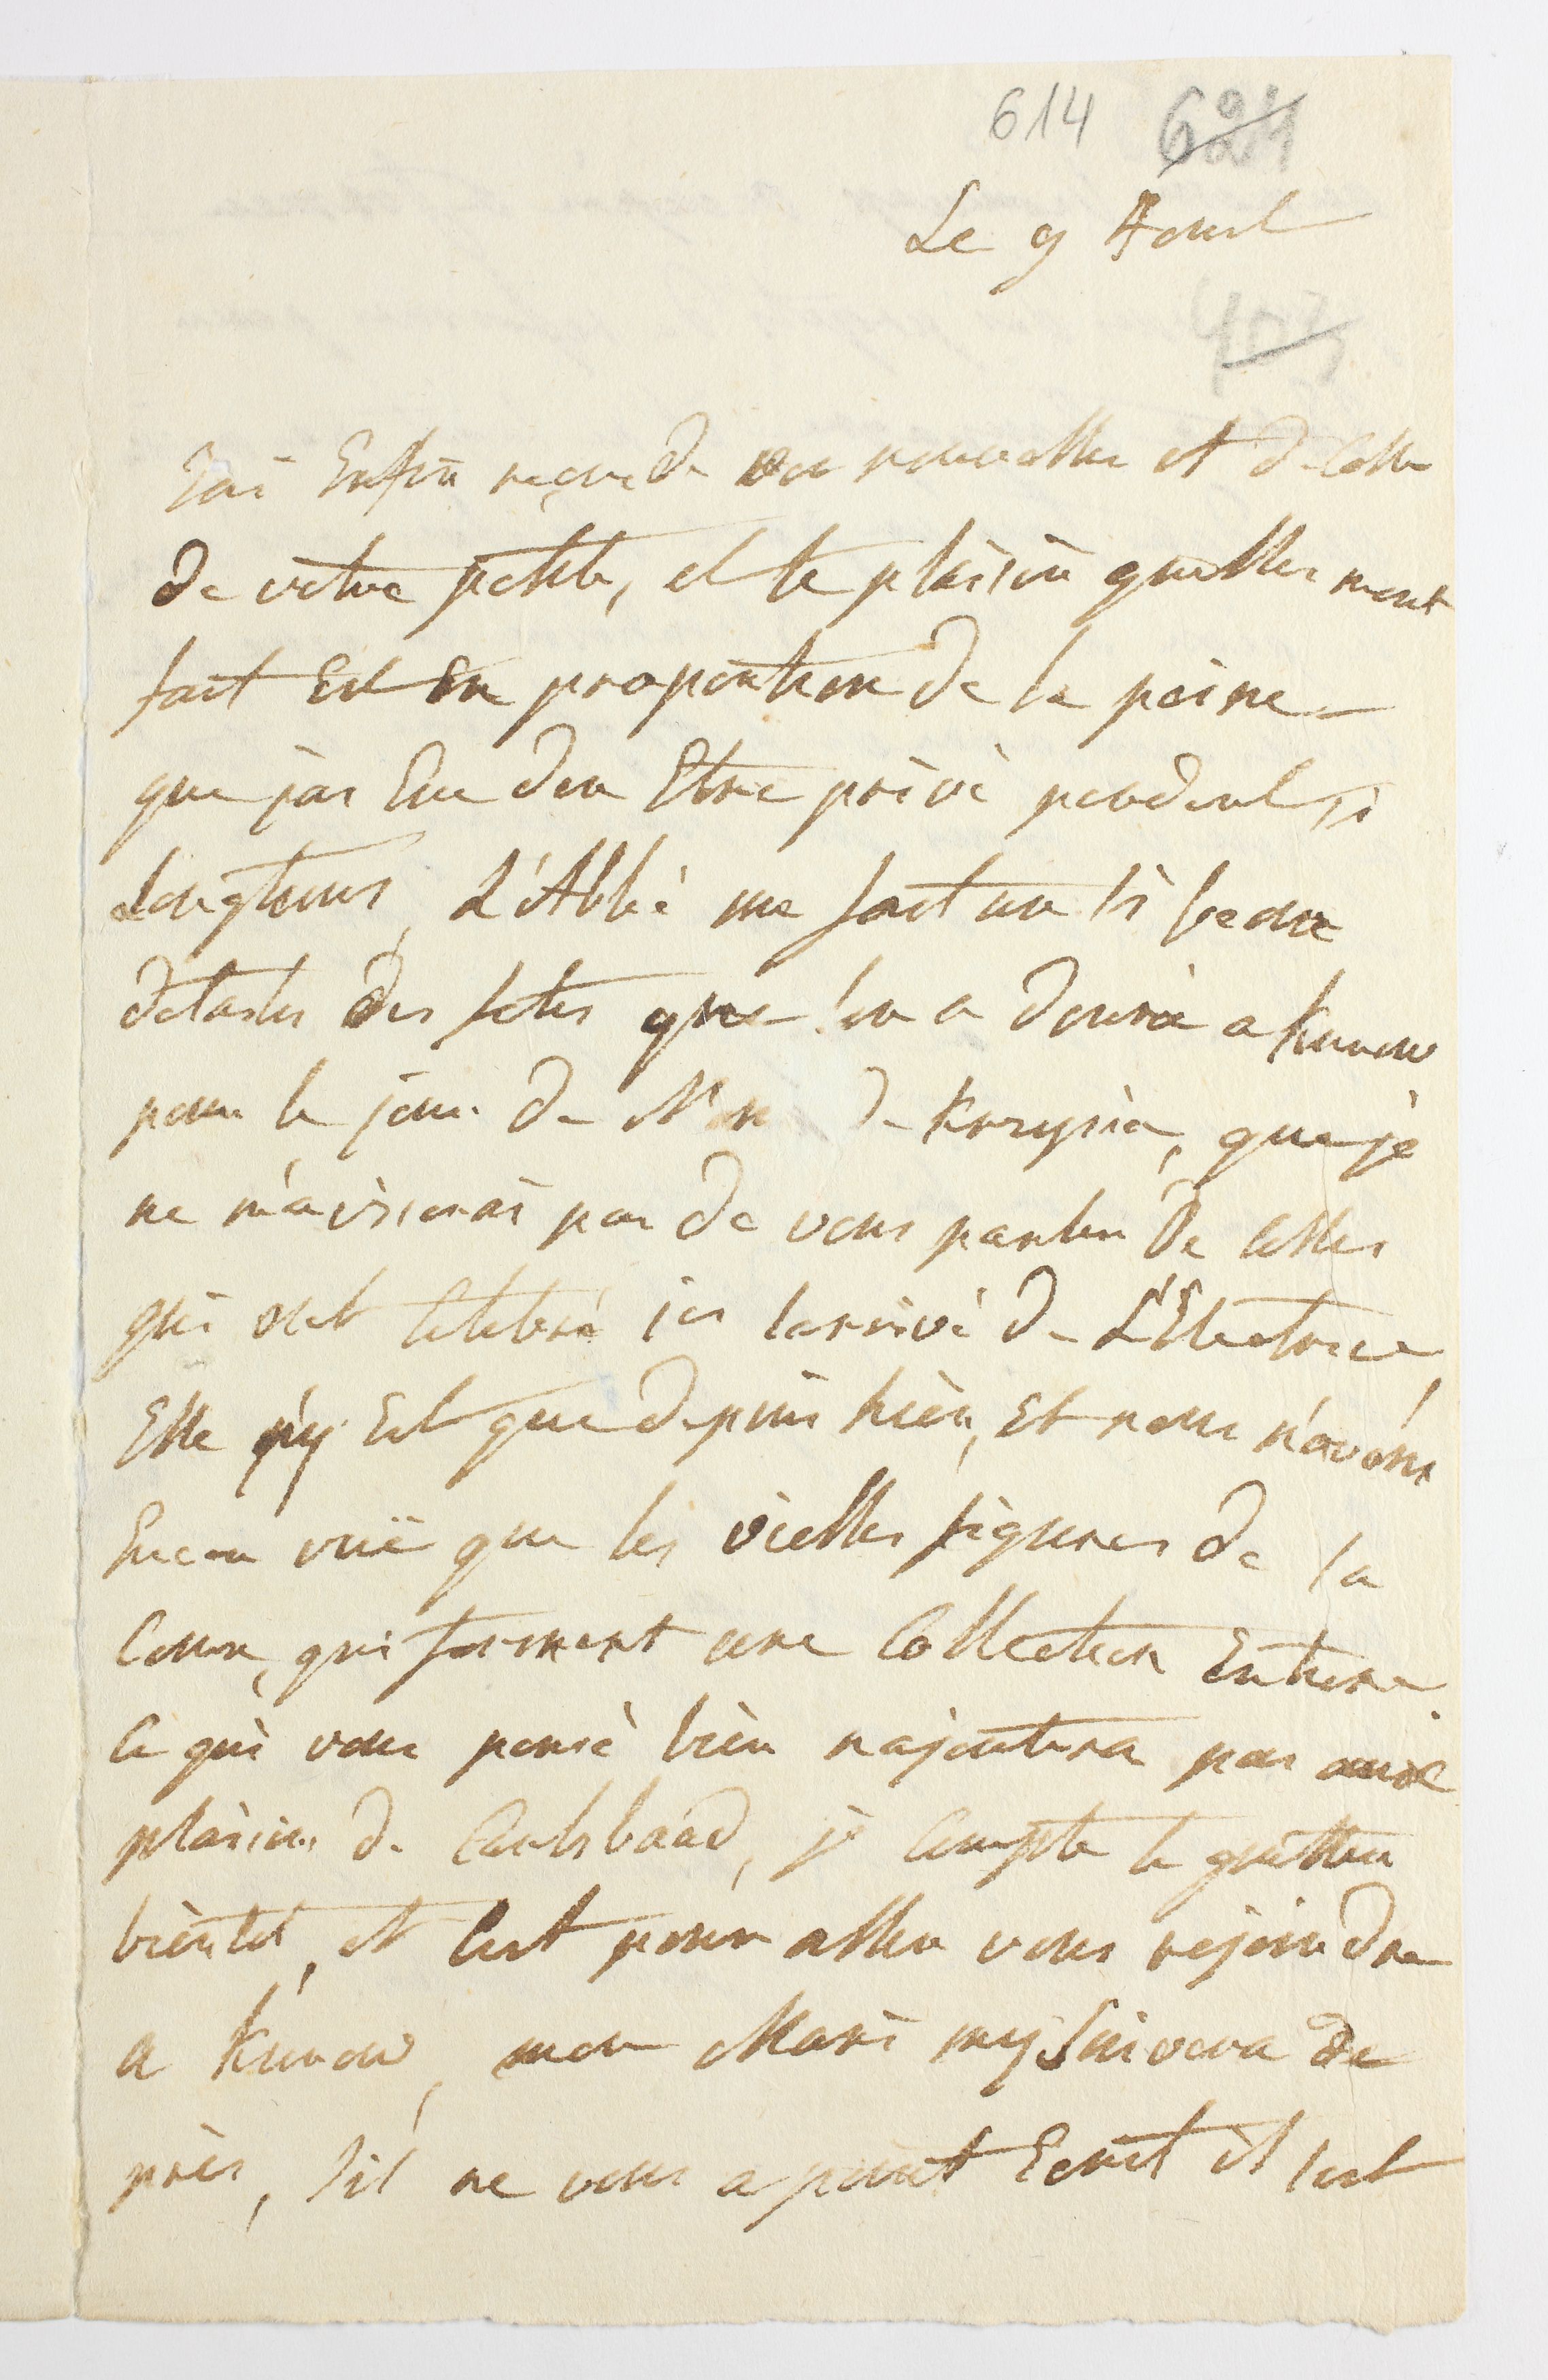 614 624
Le 9 Aout
403
J'ai Enfin reçue de vos nouvelles et de celle
de votre petite, et le plaisir quelles mont
fait Est En proportion de la peine
que jai Eue den Etre privé pendent si
Longtems, L'Abbé me fait un si beau
detailes des fetes que lon a donné a Kurow
pour le jour de Nom de Krzysia, que je
ne m'aviserai pas de vous parler de celles
qui ont celebré ici larrivé de L'Electrice,
Elle n'y Est que depuis hièr, Et nous n'avons
Encor vuë que les vielles figures de la
Cour, qui forment une Collection Entiere
ce qui vous pensé bien najoutera pas aux
plaisirs de Carlsbaad, je compte le quitter
bientot, et cest pour aller vous rejoindre
a Kurow, mon Mari my Suivera de
près, sil ne vous a point Ecrit il sest